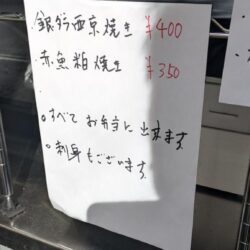 ・銀ダラ西京焼き ¥400
・赤魚粕焼き ¥350
○すべてお弁当に出来ます
○刺身もございます